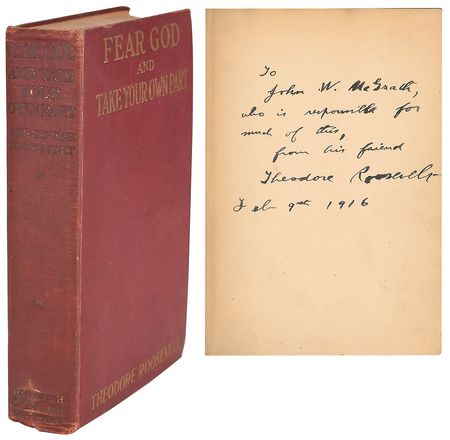 FEAR GOD
AND TAKE
YOUR
OWN PART
THEODORE
ROOSEVELT
FEAR GOD
AND
TAKE YOUR OWN PART
THEODORE ROOSEVELT
To
John W. McGrath,
who is responsible for
much of this,
from his friend
Theodore Roosevelt
Feb 9th 1916